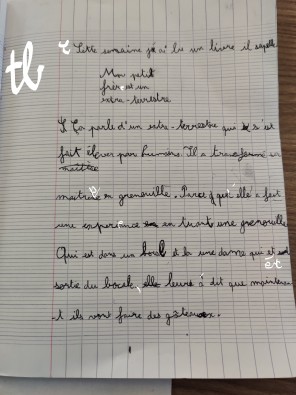 tb
Cette semaine j'ai lu un livre il sapelle
Mon petit
frère est un
extra-terrestre
Ça parle d'un extra-terrestre qui s'est
fait élever par humains. Il a transformé sa
maitresse en grenouille. Parce qu'elle a fait
une experience en tuant une grenouille
Qui est dans un bocal et la une dame qui est
sorte du bocal, elle leure a dit que maintenan
-t ils vont faire des gâteaux.